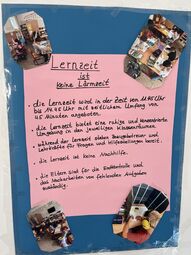 Lernzeit
ist
keine Lärmzeit
• die Lernzeit wird in der Zeit von
bis 14.45 Uhr mit zeitlichem Umfang von
45 Minuten angeboten.
• die Lernzeit bietet eine ruhige und
Umgebung in den jeweiligen Klassenräumen.
• während der Lernzeit stehen
Lehrkräfte für Fragen und Hilfestellungen bereit.
• die Lernzeit ist keine Nachhilfe.
• die Eltern sind für die Endkontrolle und
das Nacharbeiten von fehlenden Aufgaben
zuständig.